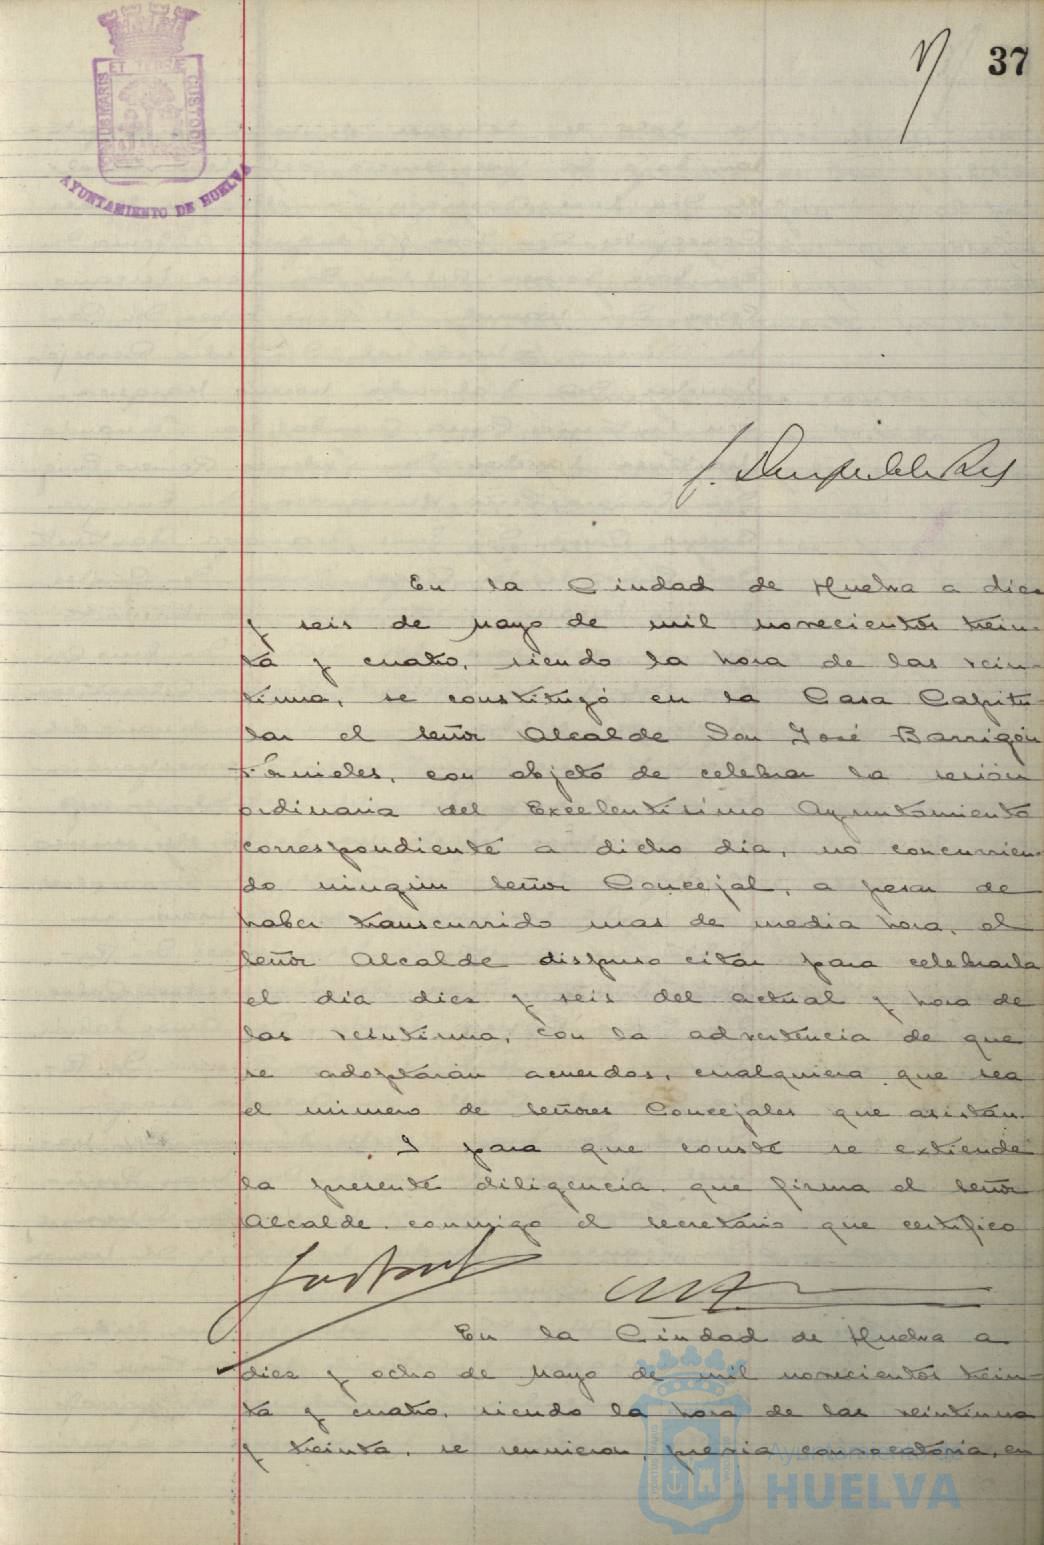 ET TERRÆ
PORTUS MARIS
CUSTODIA
AYUNTAMIENTO DE HUELVA
37
En la Ciudad de Huelva a diez
y seis de Mayo de mil novecientos trein-
ta y cuatro, siendo la hora de las vein-
tiuna, se constituyó en la Casa Capitu
lar el señor Alcalde Don José Barrigón
con objeto de celebrar la sesión
ordinaria del Excelentísimo Ayuntamiento
correspondiente a dicho dia, no concurrien-
do ningún señor Concejal, a pesar de
haber transcurrido mas de media hora, el
señor Alcalde dispuso citar para celebrarla
el dia diez y seis del actual y hora de
las veintiuna, con la advertencia de que
se adoptarán acuerdos, cualquiera que sea
el número de señores Concejales que asistan.
Y para que conste se extiende
la presente diligencia que firma el señor
Alcalde conmigo el secretario que certifico
En la Ciudad de Huelva a
diez y ocho de Mayo de mil novecientos trein-
ta y cuatro, siendo la hora de las veintiuna
y treinta, se reunieron, previa convocatoria, en
Ayuntamiento de
HUELVA